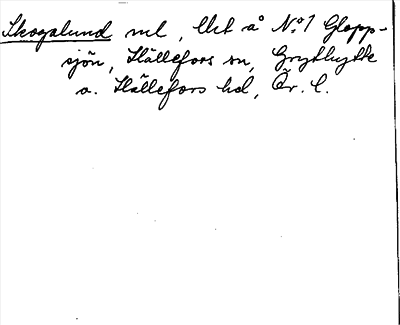 Skogalund ml, lht å No 1 Glopp-
sjön, Hällefors sn, Grythytte
o. Hällefors hd, Ör. l.